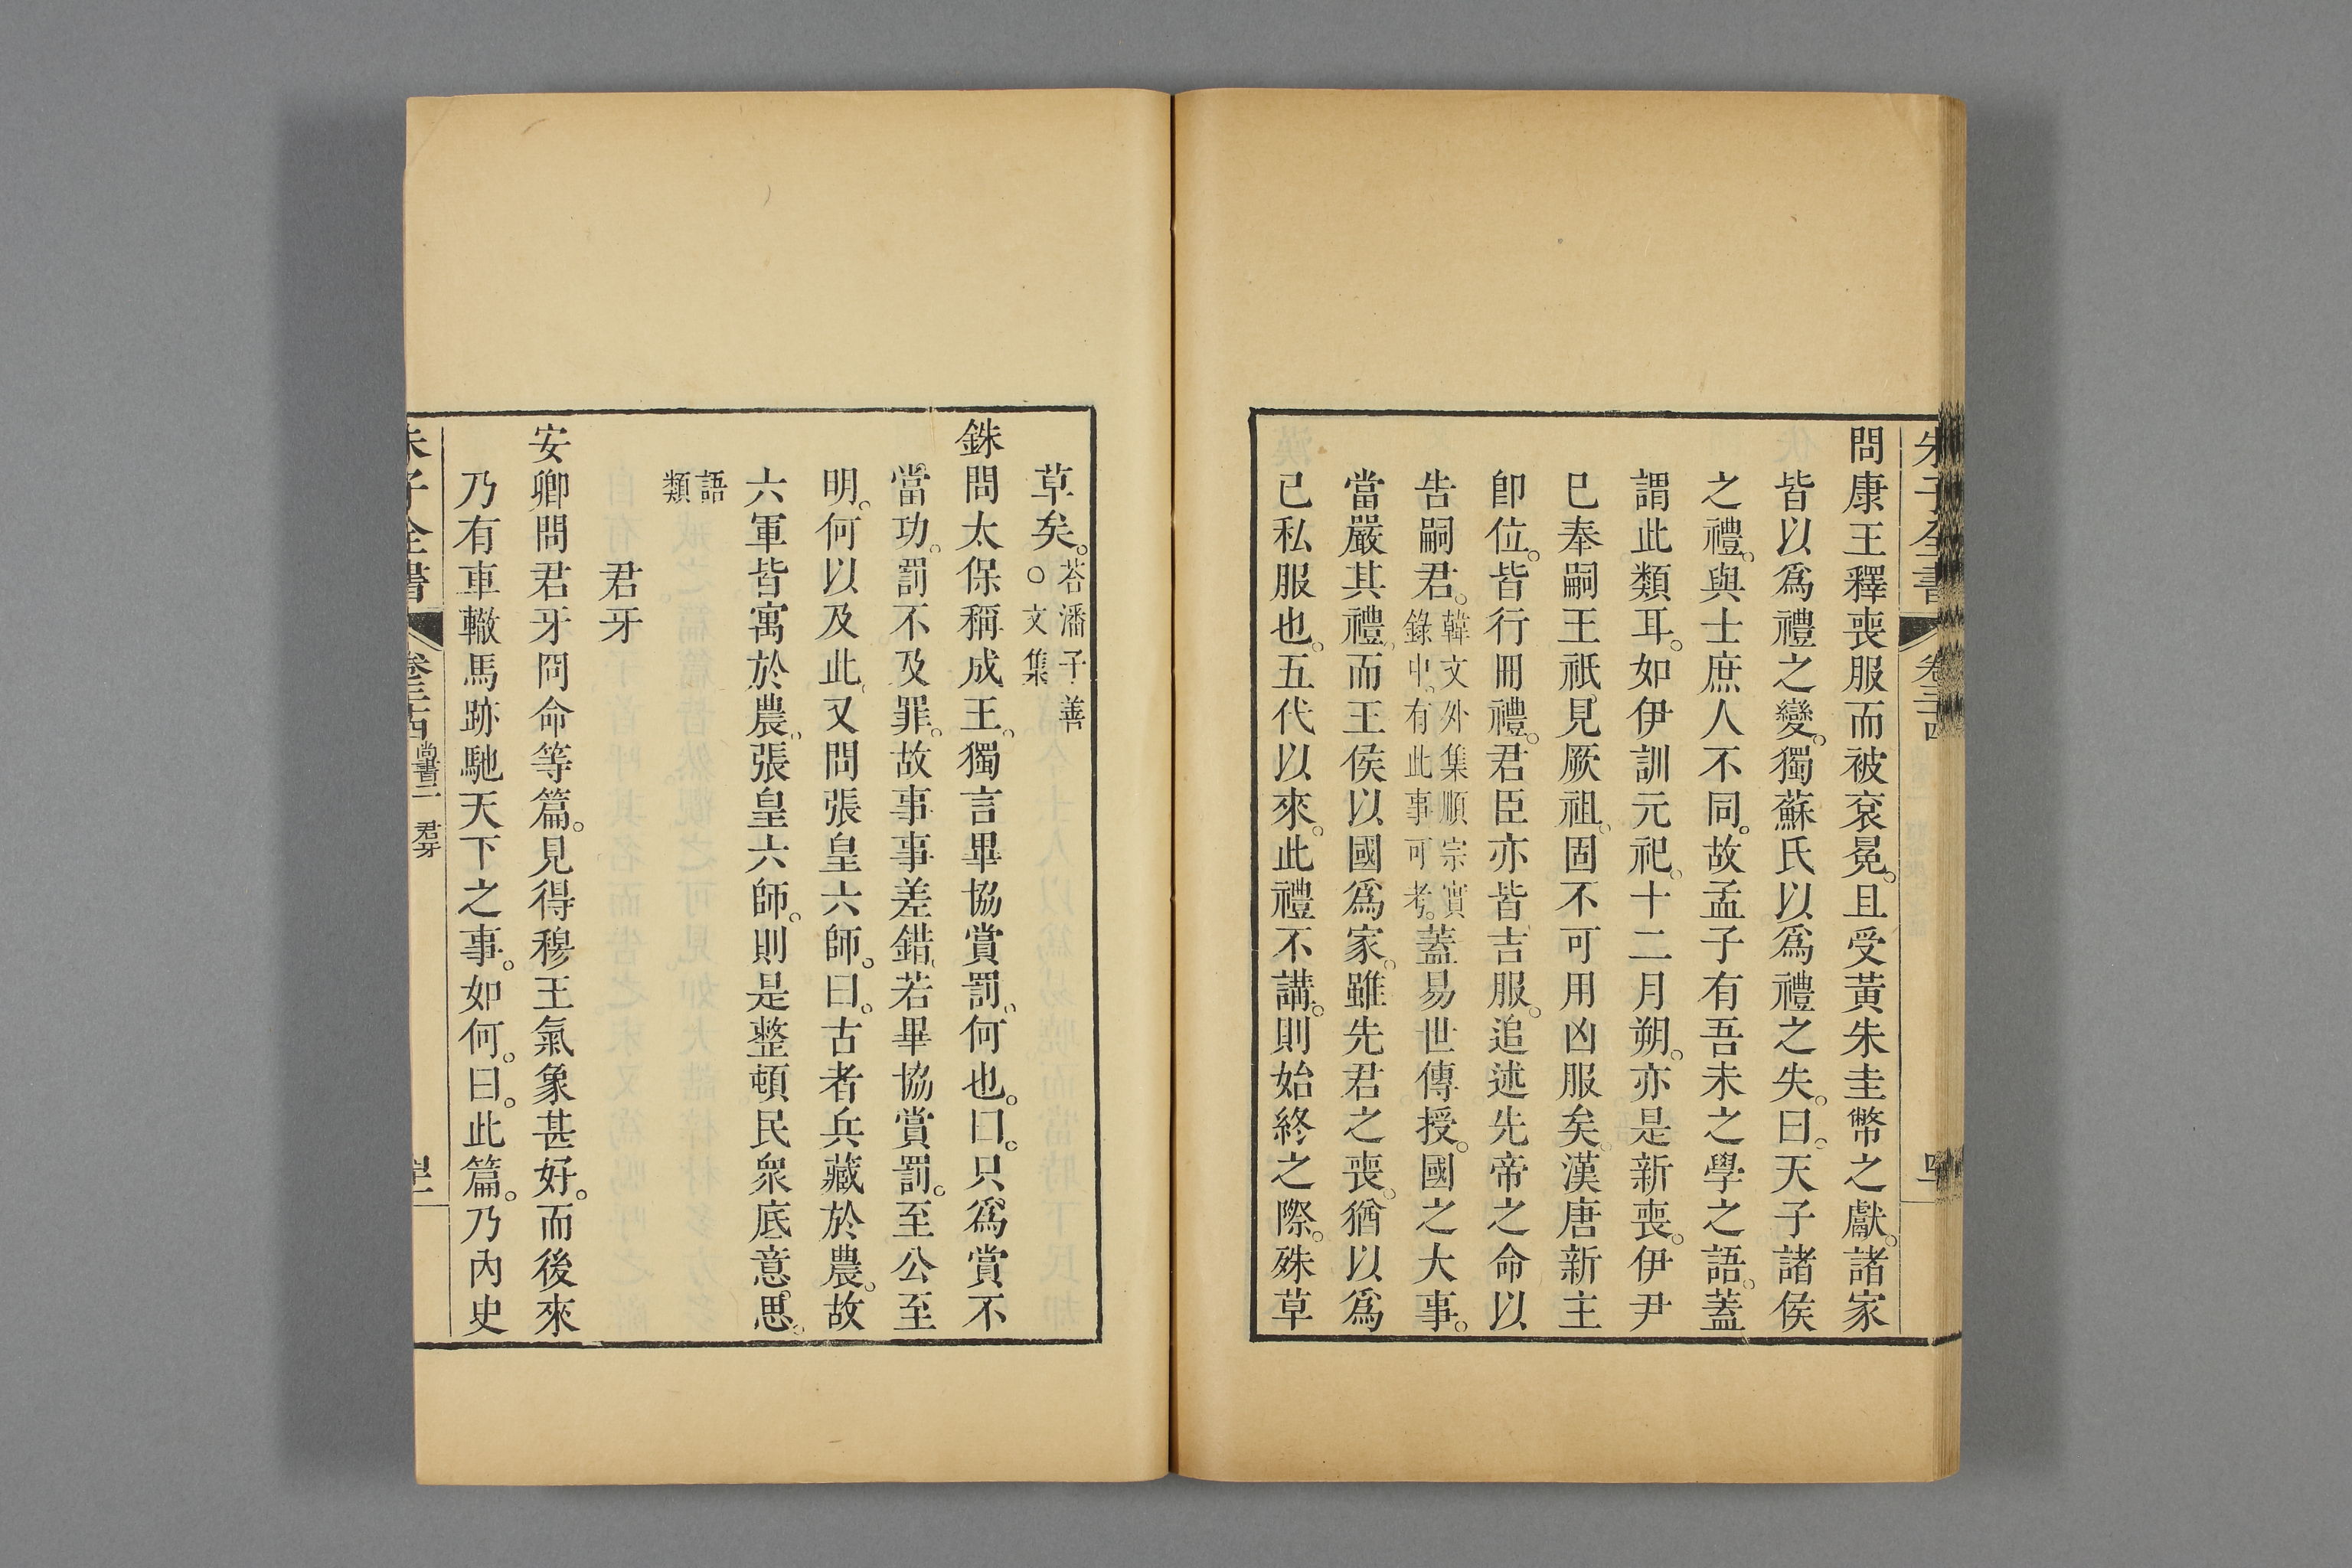 朱子全書 卷三十四
問康王釋喪服而被衮冕。且受黃朱圭幣之獻。諸家
皆以爲禮之變。獨蘇氏以爲禮之失。曰。天子諸侯
之禮。與士庶人不同。故孟子有吾未之學之語。蓋
謂此類耳。如伊訓元祀。十二月朔。亦是新喪。伊尹
已奉嗣王祇見厥祖。固不可用凶服矣。漢唐新主
卽位。皆行冊禮。君臣亦皆吉服。追述先帝之命以
告嗣君。韓文外集順宗實錄中。有此事可考。蓋易世傳授。國之大事。
當嚴其禮。而王侯以國爲家。雖先君之喪。猶以爲
已私服也。五代以來。此禮不講。則始終之際。殊草
草矣。答潘子善○文集
銖問太保稱成王。獨言畢協賞罰。何也。曰。只爲賞不
當功。罰不及罪。故事事差錯。若畢協賞罰。至公至
明。何以及此。又問張皇六師。曰。古者兵藏於農。故
六軍皆寓於農。張皇六師。則是整頓民衆底意思。
語類
君牙
安卿問君牙冏命等篇。見得穆王氣象甚好。而後來
乃有車轍馬跡馳天下之事。如何。曰。此篇。乃內史
朱子全書 卷三十四 尚書二 君牙